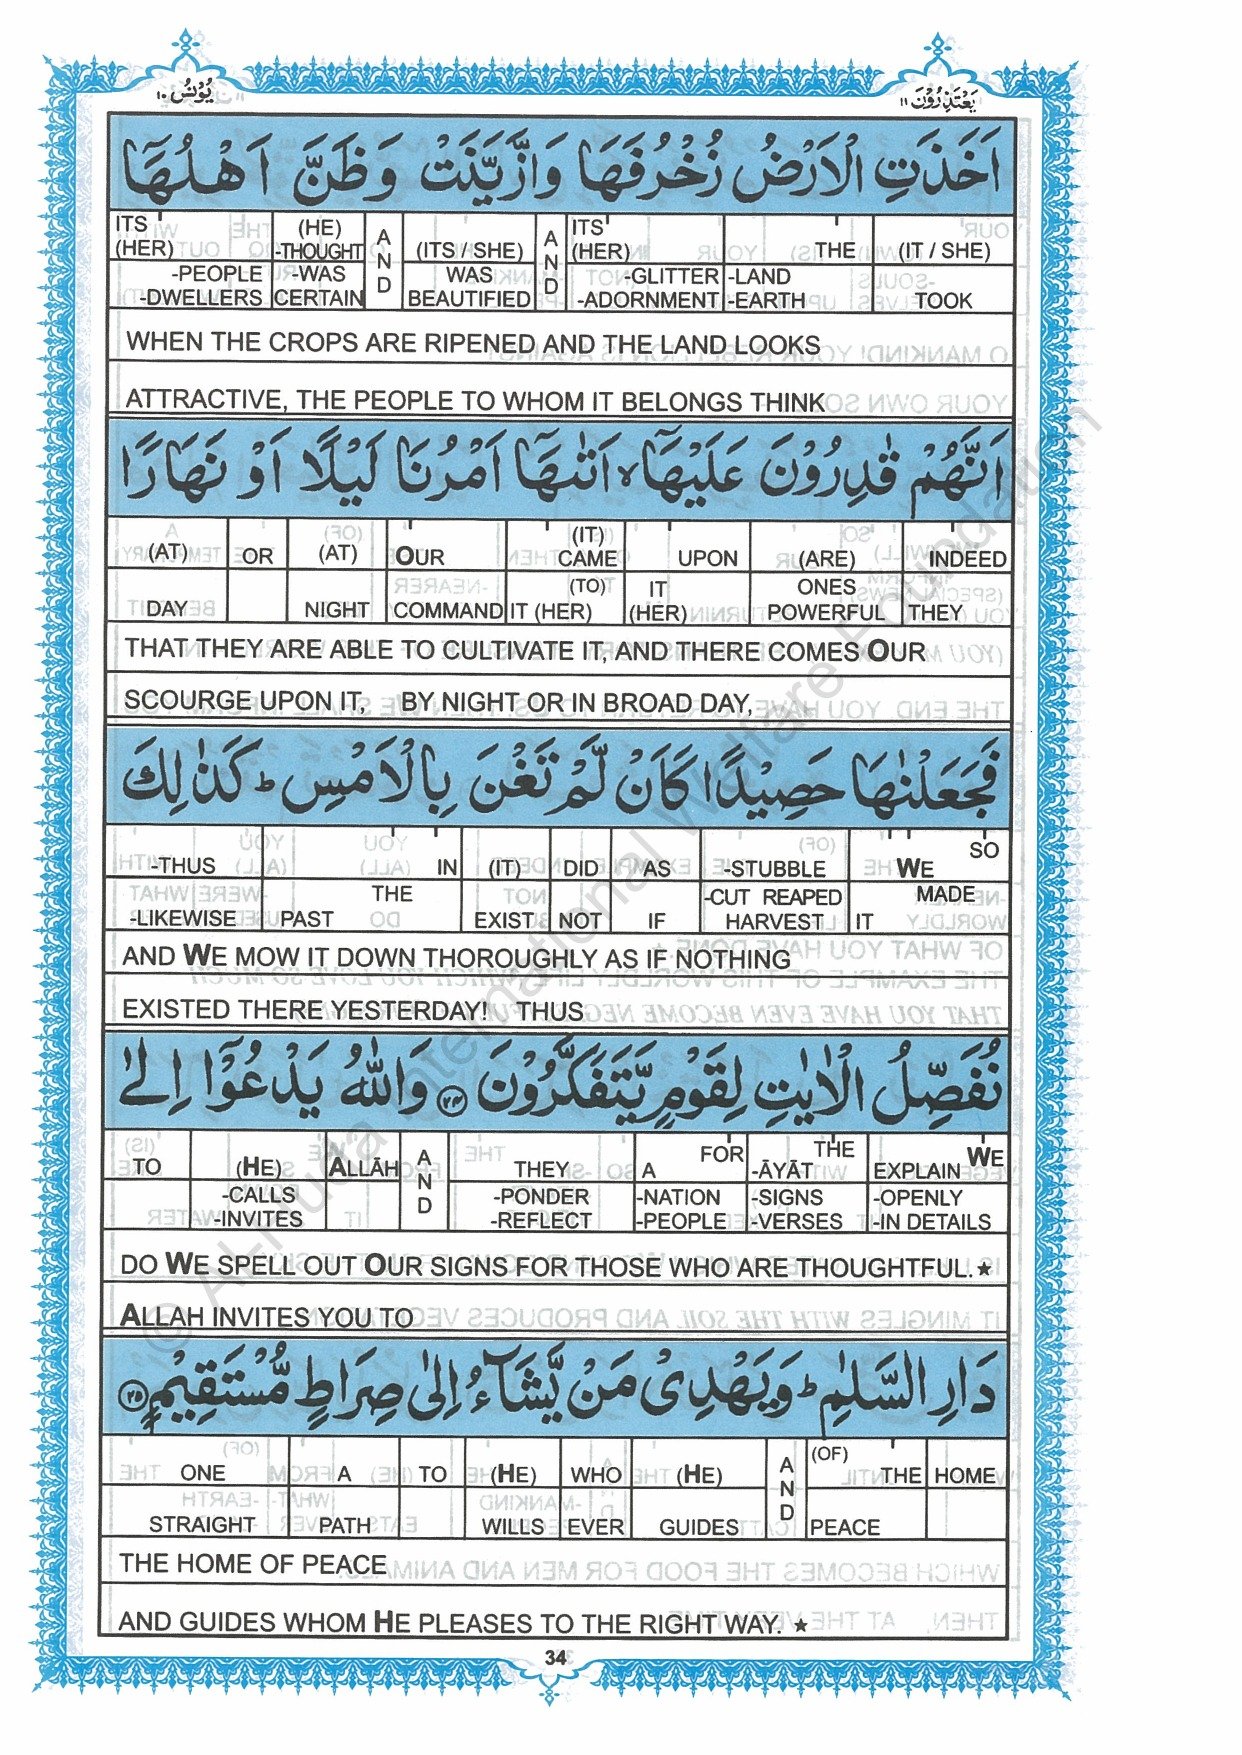 یُوْنُس ١٠
یَعْتَذِرُوْنَ ١١
اَخَذَتِ الْاَرْضُ زُخْرُفَهَا وَازَّيَّنَتْ وَظَنَّ اَهْلُهَآ
ITS (HE) A (ITS / SHE) A ITS THE (IT / SHE)
(HER) -THOUGHT N N (HER)
-PEOPLE -WAS D WAS D -GLITTER -LAND
-DWELLERS CERTAIN BEAUTIFIED -ADORNMENT -EARTH TOOK
WHEN THE CROPS ARE RIPENED AND THE LAND LOOKS
ATTRACTIVE, THE PEOPLE TO WHOM IT BELONGS THINK
اَنَّهُمْ قٰدِرُوْنَ عَلَيْهَآ ۙ اَتٰىهَآ اَمْرُنَا لَيْلًا اَوْ نَهَارًا
(IT)
(AT) OR (AT) OUR CAME UPON (ARE) INDEED
(TO) IT ONES
DAY NIGHT COMMAND IT (HER) (HER) POWERFUL THEY
THAT THEY ARE ABLE TO CULTIVATE IT, AND THERE COMES OUR
SCOURGE UPON IT, BY NIGHT OR IN BROAD DAY,
فَجَعَلْنٰهَا حَصِيْدًا كَاَنْ لَّمْ تَغْنَ بِالْاَمْسِ ؕ كَذٰلِكَ
SO
-THUS IN (IT) DID AS -STUBBLE WE
THE -CUT REAPED MADE
-LIKEWISE PAST EXIST NOT IF HARVEST IT
AND WE MOW IT DOWN THOROUGHLY AS IF NOTHING
EXISTED THERE YESTERDAY! THUS
نُفَصِّلُ الْاٰيٰتِ لِقَوْمٍ يَّتَفَكَّرُوْنَ ٢٤ وَاللّٰهُ يَدْعُوْٓا اِلٰى
FOR THE WE
TO (HE) ALLĀH A THEY A -ĀYĀT EXPLAIN
-CALLS N -PONDER -NATION -SIGNS -OPENLY
-INVITES D -REFLECT -PEOPLE -VERSES -IN DETAILS
DO WE SPELL OUT OUR SIGNS FOR THOSE WHO ARE THOUGHTFUL.★
ALLAH INVITES YOU TO
دَارِ السَّلٰمِ ؕ وَيَهْدِىْ مَنْ يَّشَآءُ اِلٰى صِرَاطٍ مُّسْتَقِيْمٍ ٢٥
(OF)
ONE A TO (HE) WHO (HE) A THE HOME
N
STRAIGHT PATH WILLS EVER GUIDES D PEACE
THE HOME OF PEACE
AND GUIDES WHOM HE PLEASES TO THE RIGHT WAY. ★
34
© Al-Huda International Welfare Foundation